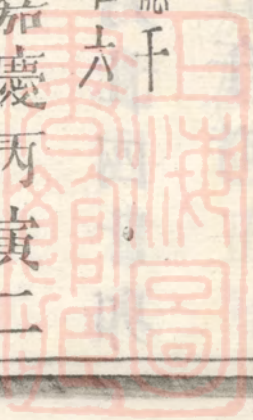 千
六
嘉慶丙寅二
上海圖
書館藏